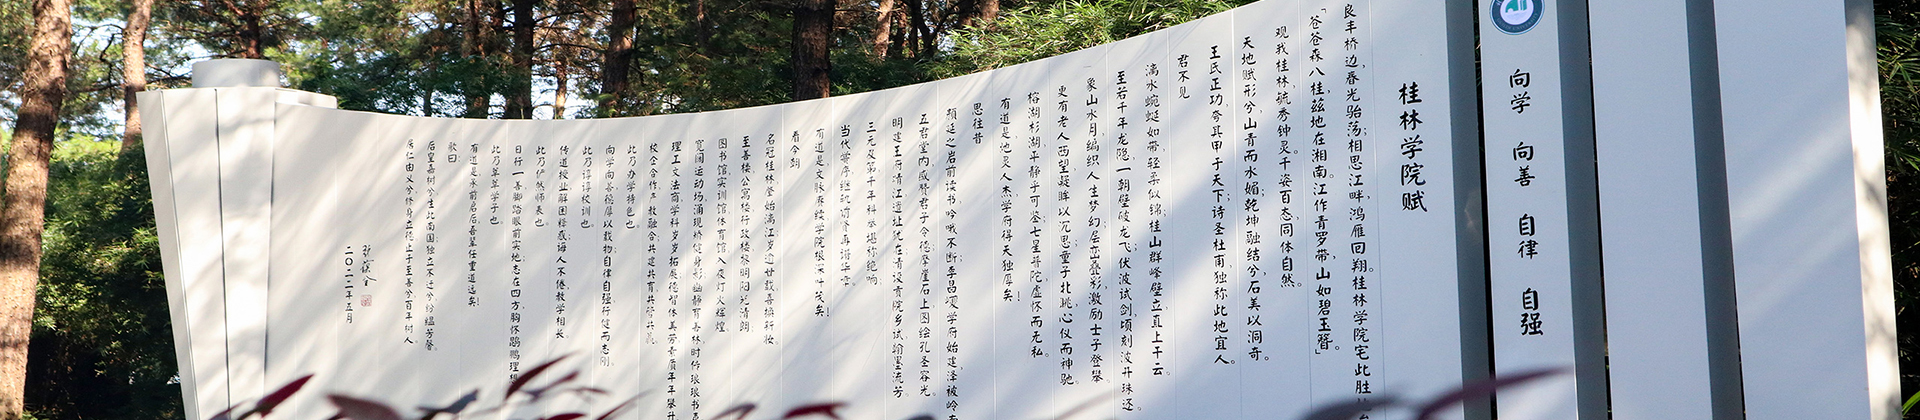 向学 向善 自律 自强
桂林学院赋
良丰桥边,春光骀荡;相思江畔,鸿雁回翔。桂林学院宅此胜
「苍苍森八桂,兹地在湘南。江作青罗带,山如碧玉簪」
观我桂林,毓秀钟灵。千姿百态,同体自然。
天地赋形兮,山青而水媚;乾坤融结兮,石美以洞奇。
王氏正功,夸其甲于天下;诗圣杜甫,独称此地宜人。
君不见
漓水蜿蜒如带,轻柔似锦;桂山群峰壁立,直上干云。
至若千年龙隐,一朝壁破龙飞;伏波试剑,顷刻波升珠还。
象山水月,编织人生梦幻;层峦叠彩,激励士子登攀。
更有老人西望,凝眸以沉思;童子北眺,心仪而神驰。
榕湖杉湖,平静乎可鉴;七星普陀,虚怀而无私。
有道是,地灵人杰,学府得天独厚矣!
思往昔
颜延之岩前读书,吟哦不断;李昌巙学府始建,泽被岭
五君堂内,咸赞君子令德;摩崖石上,图绘孔圣容光。
明建王府,靖江遗址犹在;清设贡院,乡试翰墨流芳。
三元及第,千年科举堪称绝响;
当代黉序,继轨前贤再谱华章。
有道是,文脉赓续,学院根深叶茂矣!
看今朝
名冠桂林,肇始漓江;岁逾廿载,喜换新妆
至善楼公寓楼行政楼,黎明阳光清朗;
图书馆实训馆体育馆,入夜灯火辉煌。
宽阔运动场,涌现矫健身形;幽静育善林,时传琅琅书
理工文法商,学科岁岁拓展;德智体美劳,素质年年攀升
校企合作,产教融合;共建共育,共管共赢。
此乃办学特色也。
向学向善,德厚以载物;自律自强,行健而志刚。
此乃谆谆校训也。
传道授业解困释惑,诲人不倦教学相长。
此乃俨然师表也。
日行一善,脚踏眼前实地;志在四方,胸怀鹍鹏理想
此乃莘莘学子也。
有道是,承前启后,吾辈任重道远矣!
歌曰:
后皇嘉树兮生此南国,独立不迁兮纷缊芳馨。
居仁由义兮修身立德,止于至善兮百年树人
二〇二二年五月